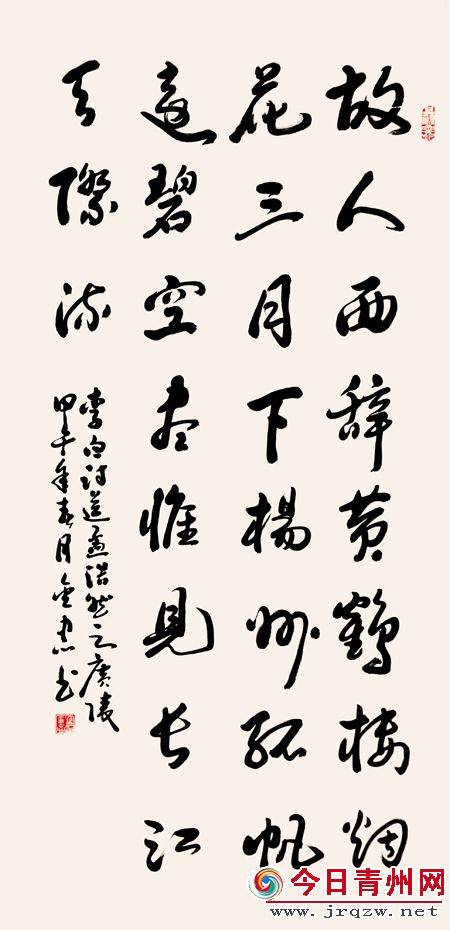 故人西辞黄鶴楼烟
花三月下楊州孤帆
遠碧空尽惟見长江
天際流
李白詩送孟浩然之廣陵
甲午年春月金忠书
今日青州网
www.jrqzw.net